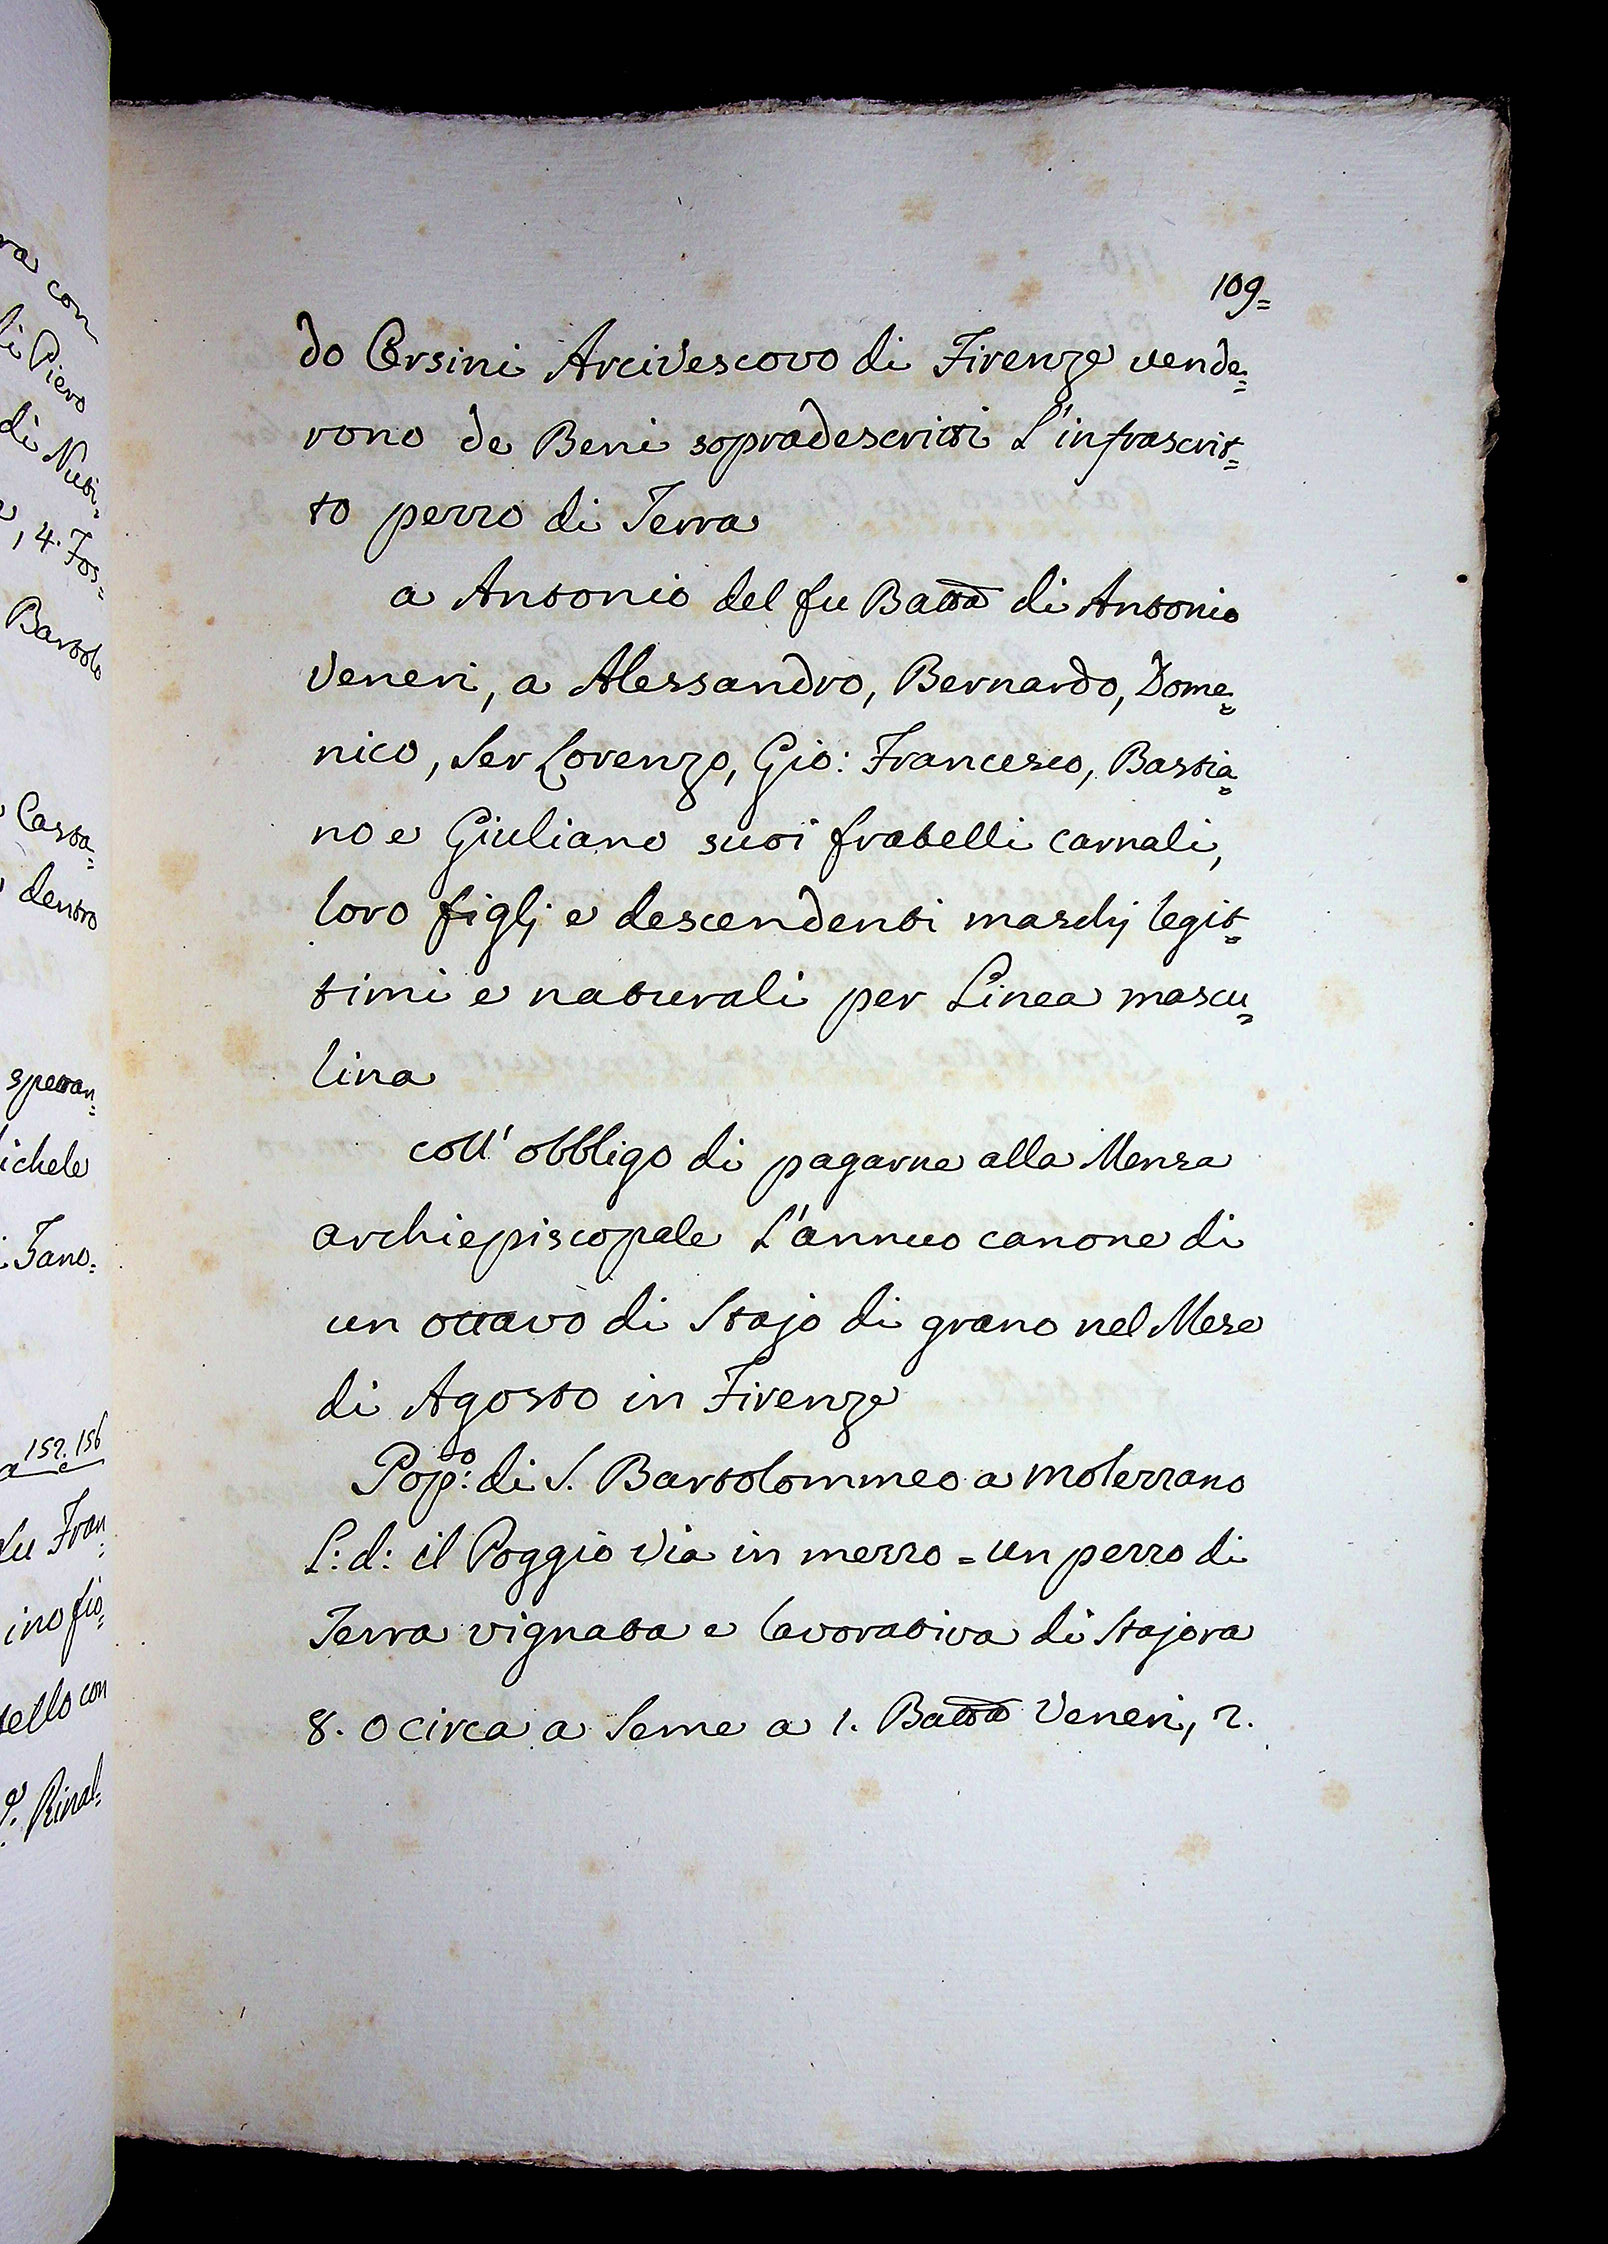 109=
do Orsini Arcivescovo di Firenze vende=
rono de Beni sopradescritti L'infrascrit=
to pezzo di Terra
a Antonio del fu Batta di Antonio
Veneri, a Alessandro, Bernardo, Dome=
nico, Ser Lorenzo, Gio: Francesco, Bastia=
no e Giuliano suoi fratelli carnali,
loro figlj e descendenti maschj legit=
timi e naturali per Linea mascu=
lina
coll' obbligo di pagarne alla Mensa
archiepiscopale L'annuo canone di
un ottavo di Stajo di grano nel Mese
di Agosto in Firenze
Popo: di S. Bartolommeo a Molezzano
L: d: il Poggio Via in mezzo = un pezzo di
Terra vignata e lavorativa di Stajora
8. o circa a Seme a 1. Batta Veneri, 2.
ra con
li Piero
di Nuti=
, 4. Fos=
Bartolo
Casta=
dentro
spettan=
ichele
Fano=
152. 156
du Fran=
ino fio=
tello con
Rinal=